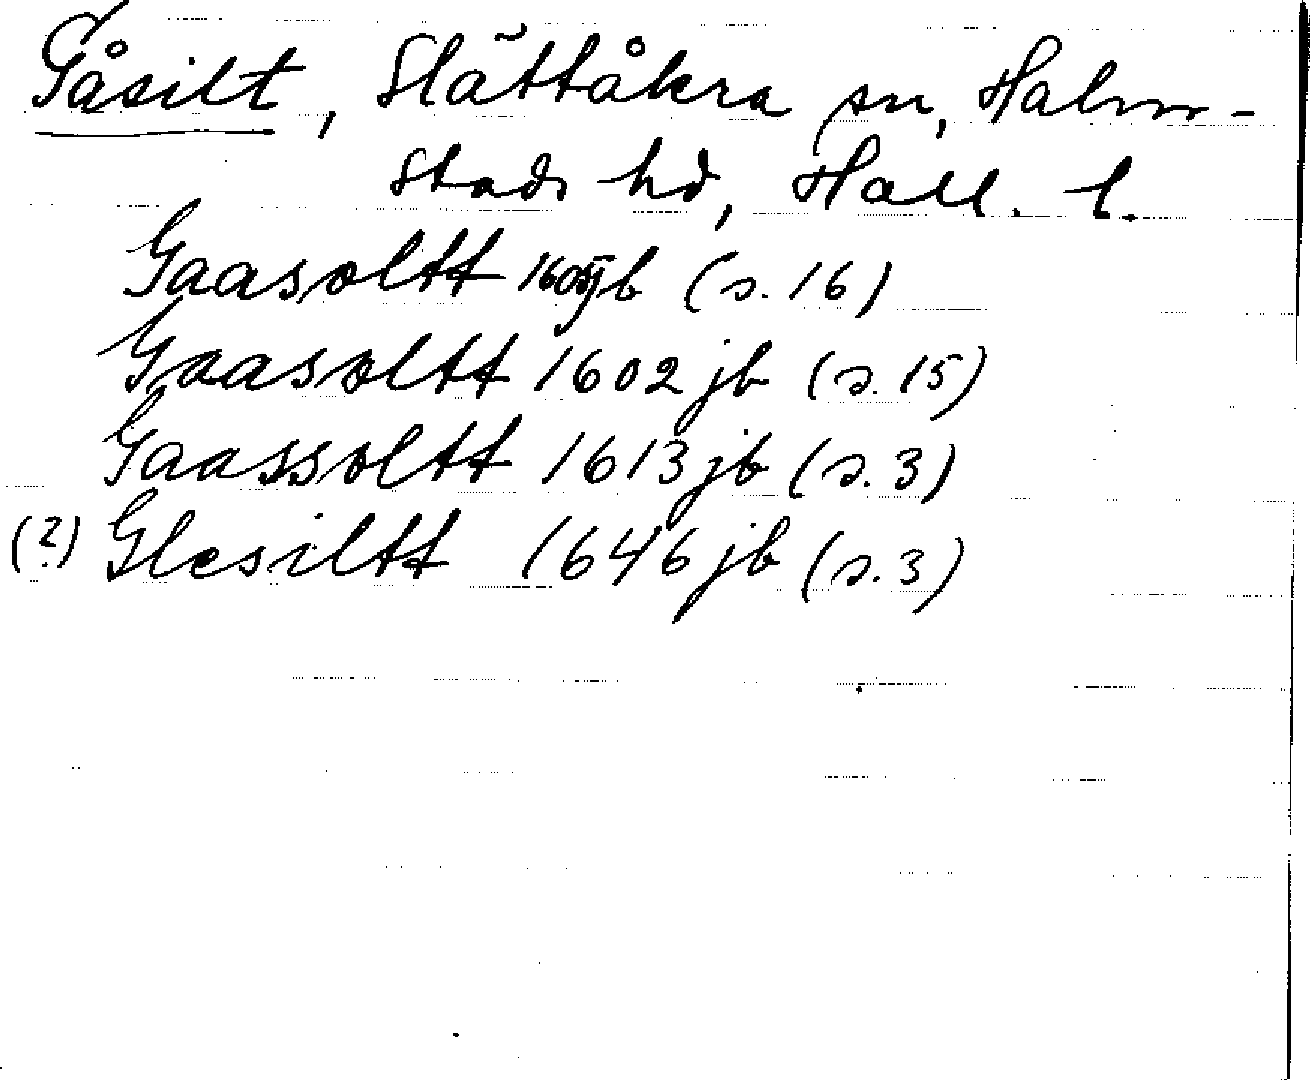 Gåsilt, Slättåkra sn, Halm-
stads hd, Hall. l.
Gaasoltt jb (s. 16)
Gaasoltt 1602 jb (s. 15)
Gaassoltt 1613 jb (s. 3)
(?) Glesiltt 1646 jb (s. 3)